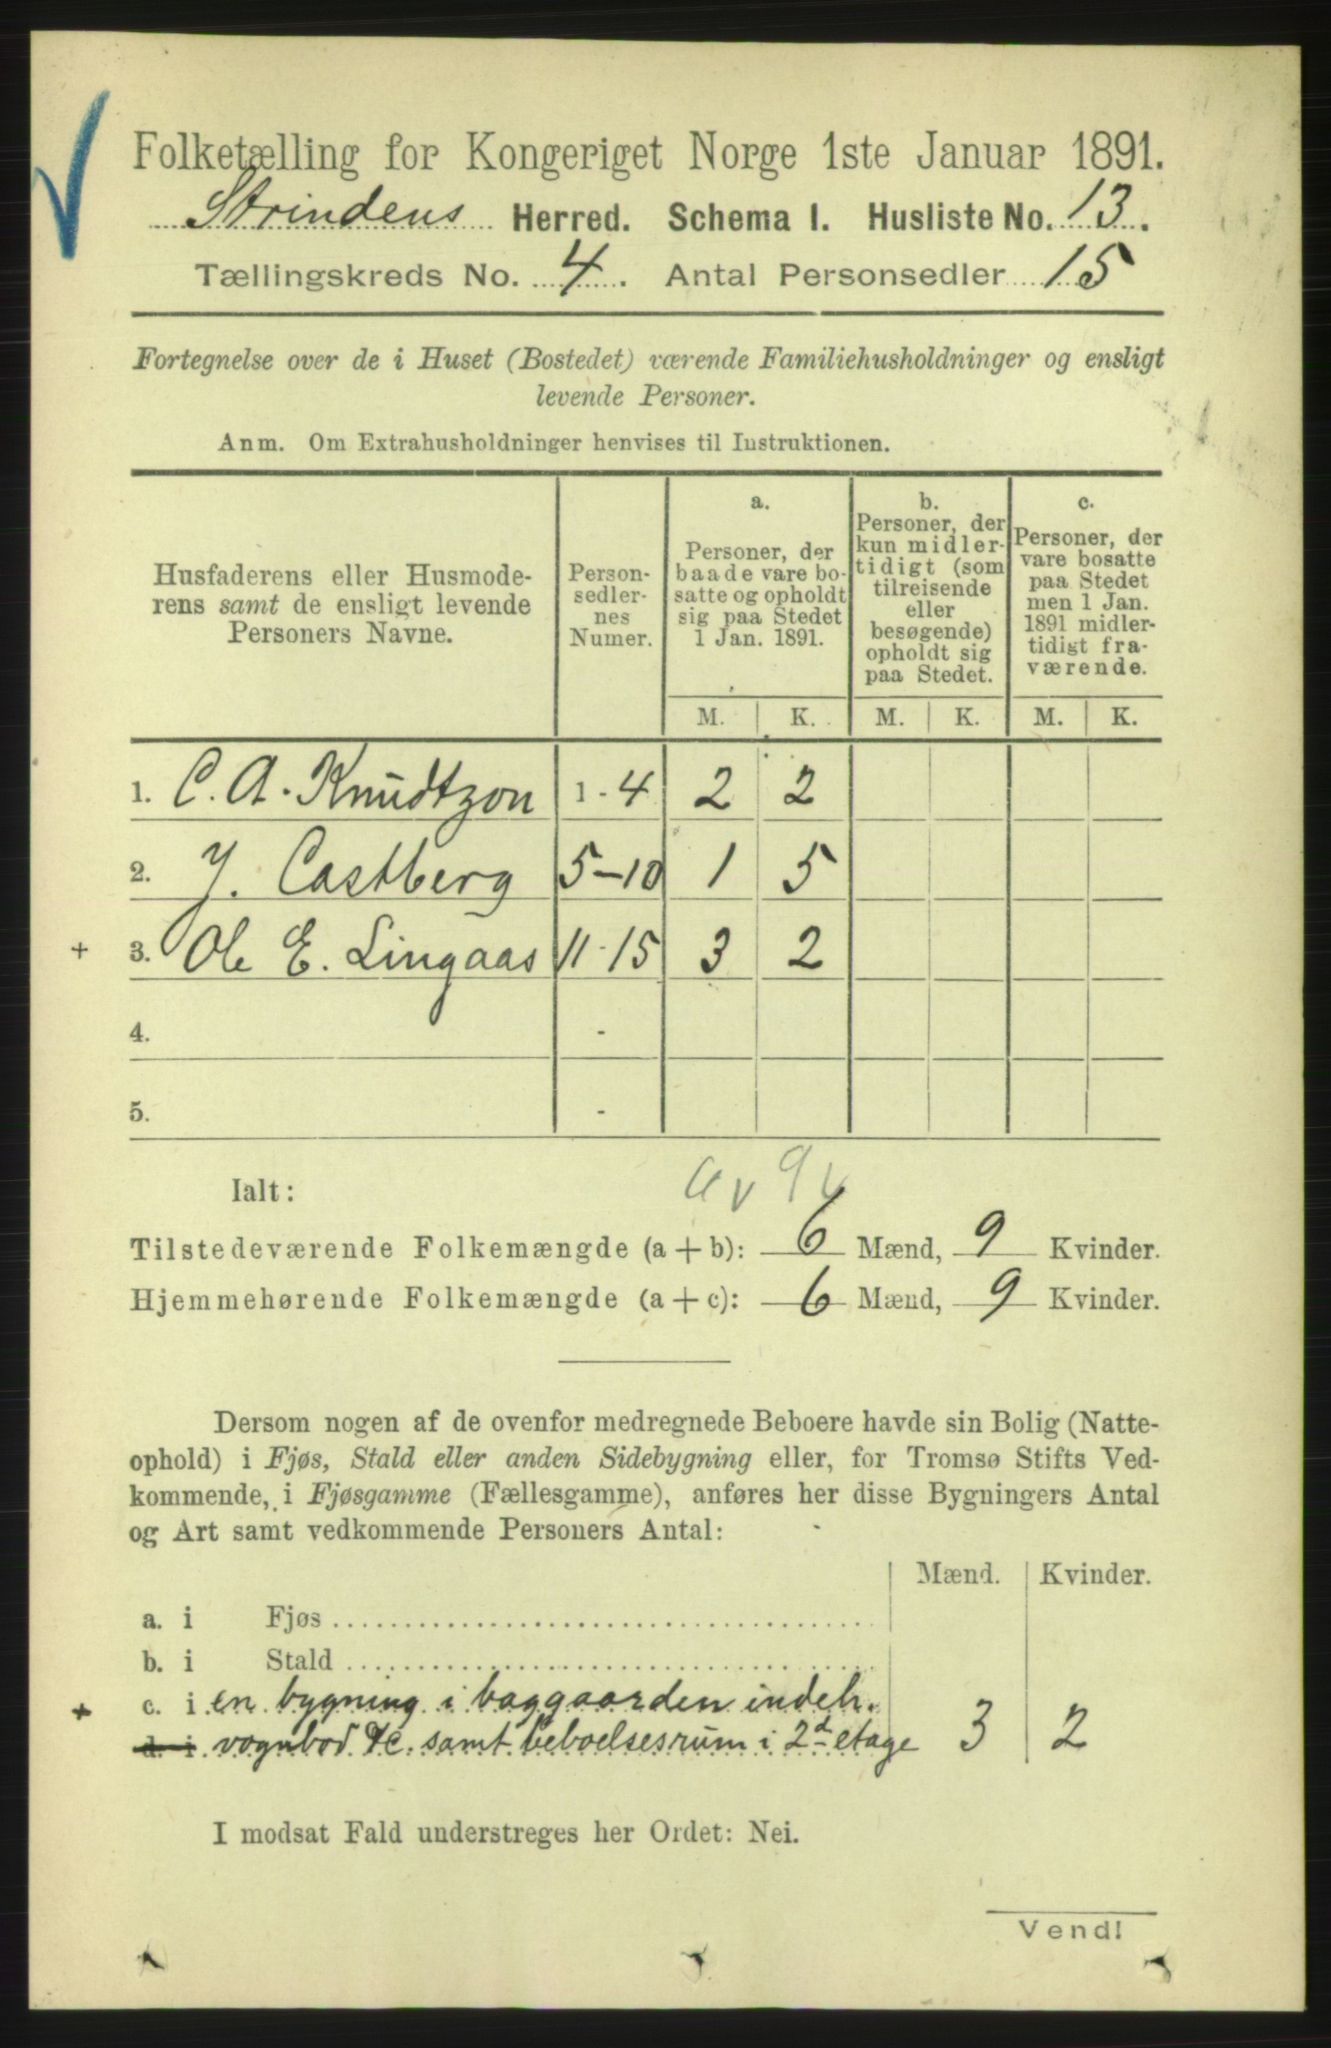 Folketælling for Kongeriget Norge 1ste Januar 1891.
Strindens Herred. Schema I. Husliste No. 13.
Tællingskreds No. 4. Antal Personsedler 15
Fortegnelse over de i Huset (Bostedet) værende Familiehusholdninger og ensligt
levende Personer.
Anm. Om Extrahusholdninger henvises til Instruktionen.
Husfaderens eller Husmode-
rens samt de ensligt levende
Personers Navne.
Person-
sedler-
nes
Numer.
a.
Personer, der
baade vare bo-
satte og opholdt
sig paa Stedet
1 Jan. 1891.
b.
Personer, der
kun midler-
tidigt (som
tilreisende
eller
besøgende)
opholdt sig
paa Stedet.
c.
Personer, der
vare bosatte
paa Stedet
men 1 Jan.
1891 midler-
tidigt fra-
værende.
M. K. M. K. M. K.
1. C. A. Knudtzon 1-4 2 2
2. J. Castberg 5-10 1 5
+ 3. Ole E. Lingaas 11-15 3 2
4. -
5. -
6 v 9 v
Ialt:
Tilstedeværende Folkemængde (a + b): 6 Mænd, 9 Kvinder.
Hjemmehørende Folkemængde (a + c): 6 Mænd, 9 Kvinder.
Dersom nogen af de ovenfor medregnede Beboere havde sin Bolig (Natte-
ophold) i Fjøs, Stald eller anden Sidebygning eller, for Tromsø Stifts Ved-
kommende, i Fjøsgamme (Fællesgamme), anføres her disse Bygningers Antal
og Art samt vedkommende Personers Antal:
Mænd. Kvinder.
a. i Fjøs
b. i Stald
+ c. i en bygning i baggaarden indeh.
d. i vognbod &c. samt beboelsesrum i 2d etage 3 2
I modsat Fald understreges her Ordet: Nei.
Vend!